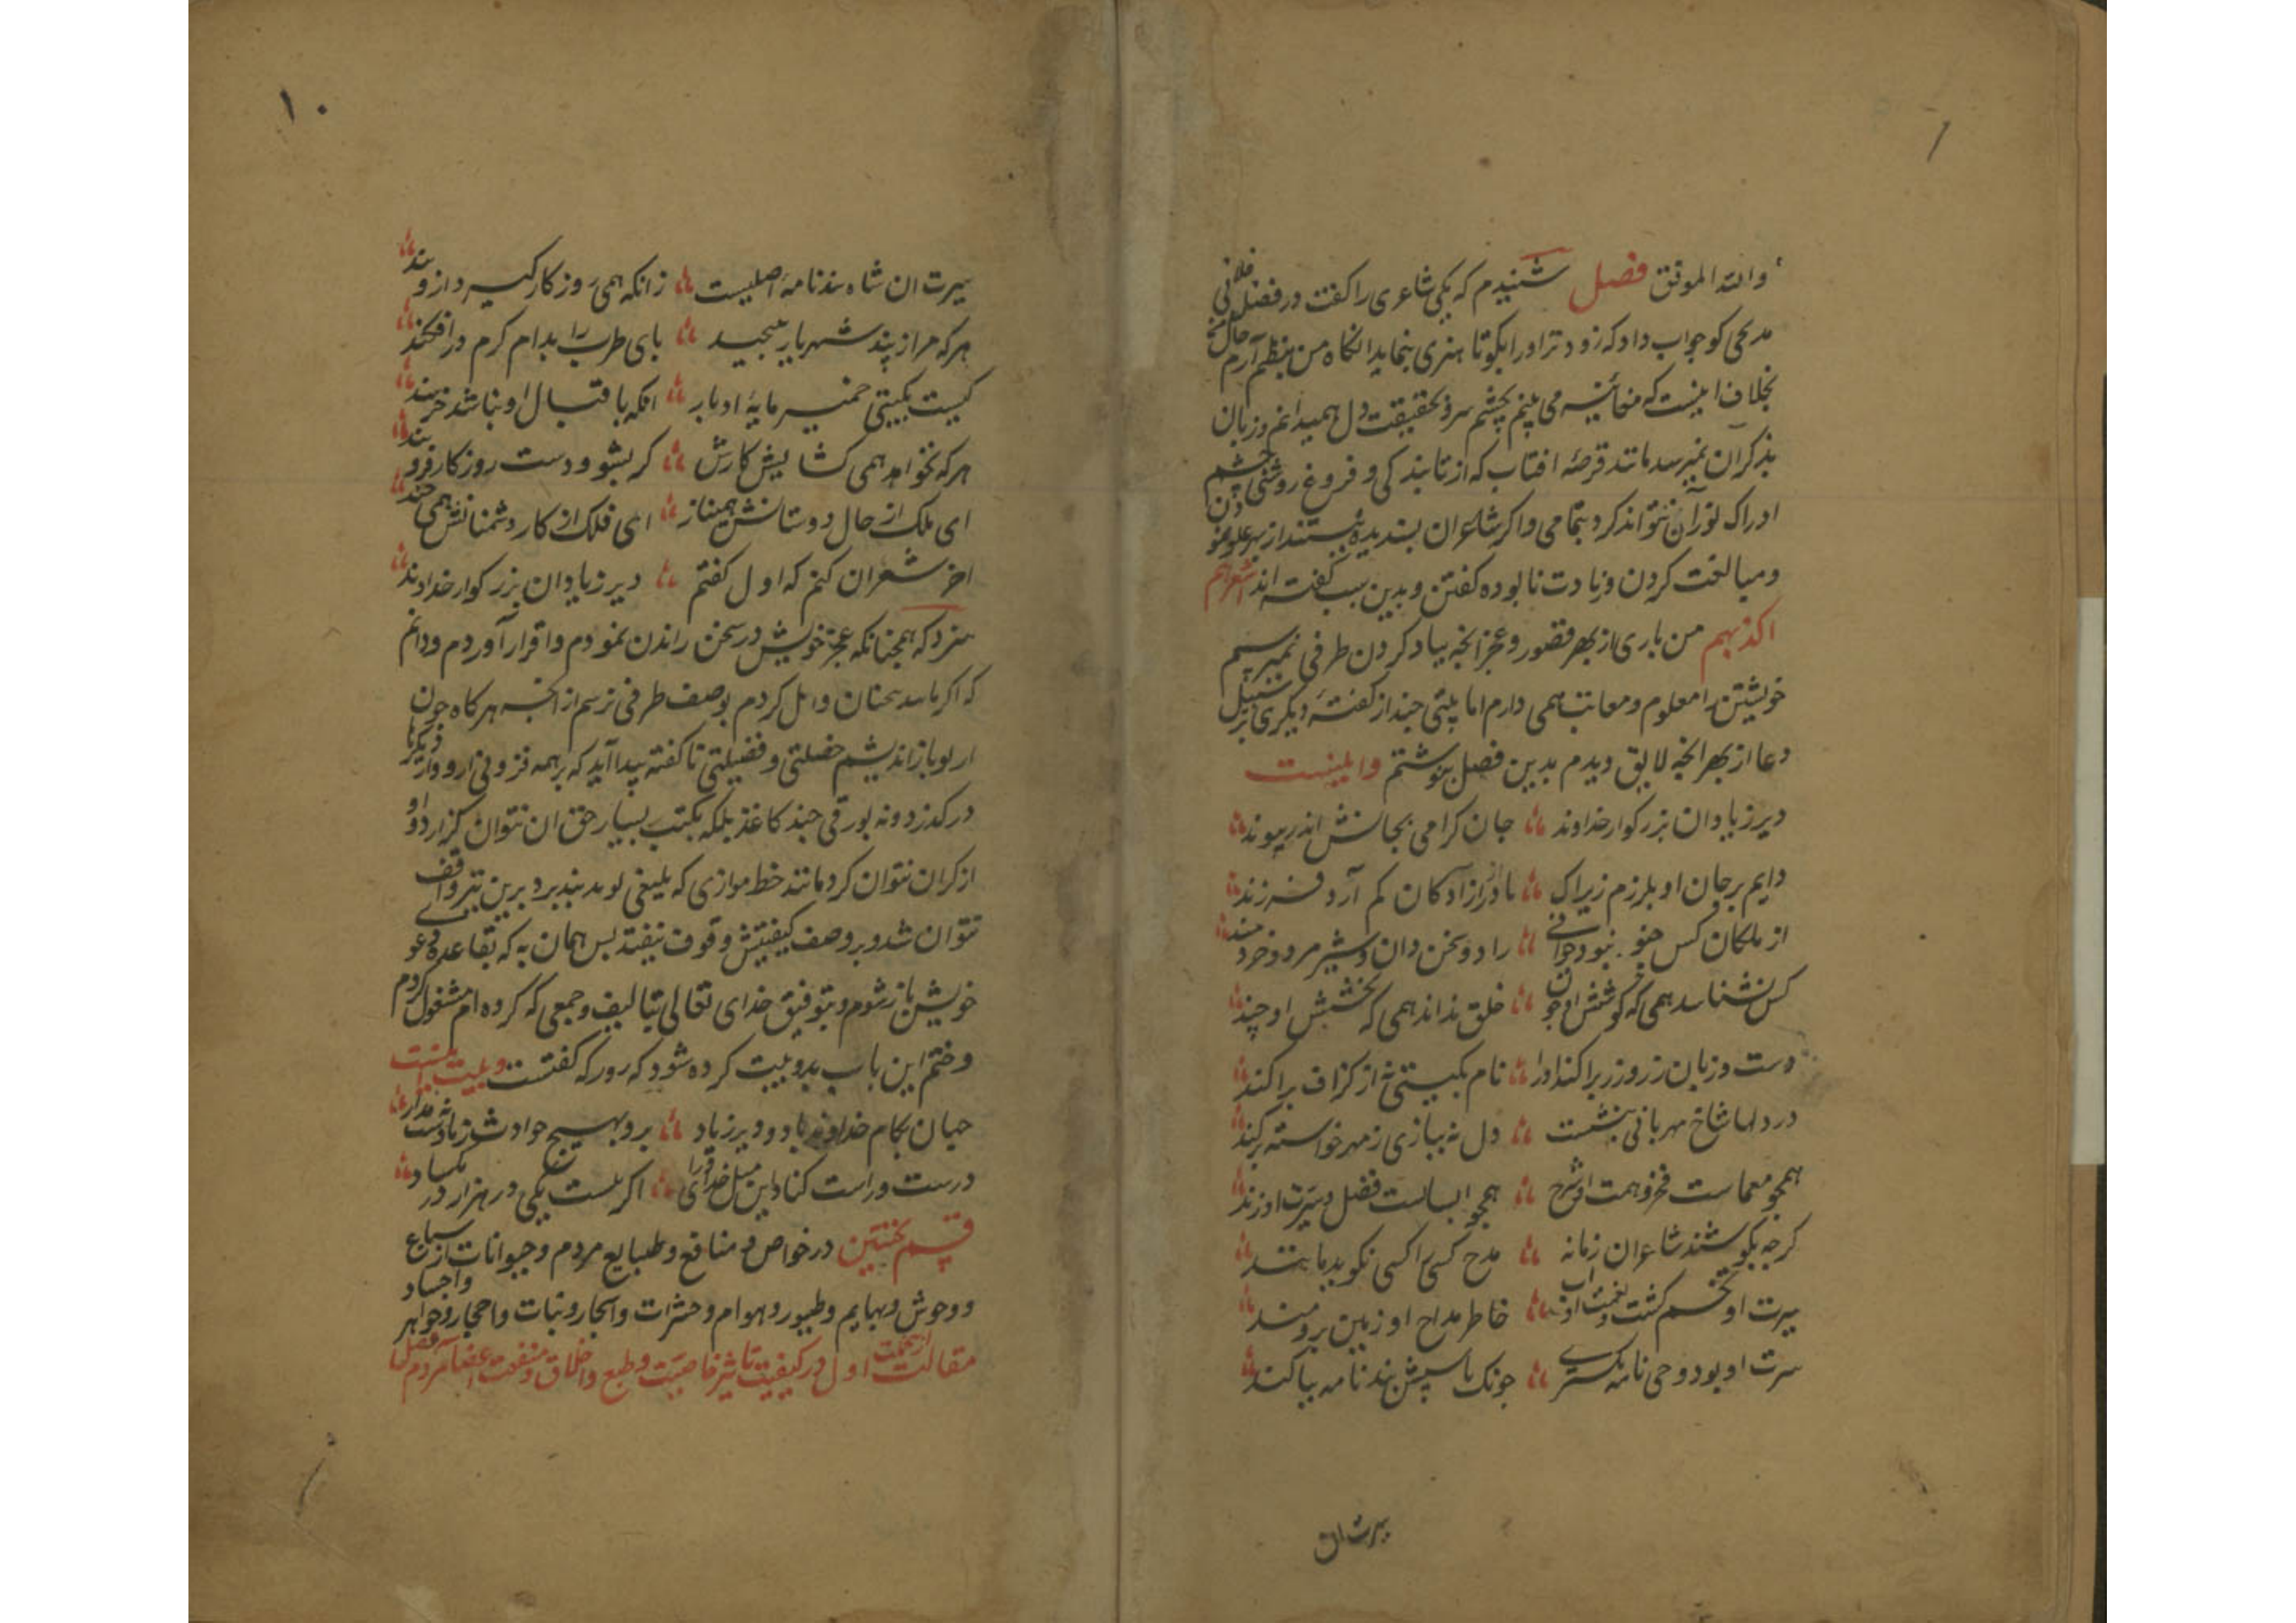 والله الموفق فصل شنیدم که یکی شاعری را گفت در فضل فلانی
مدحی کو جواب داد که زودتر اورا بکو تا هنری بنماید انکاه من بنظم آرم حال
بخلاف اینست که معاینه می بینم بچشم سر و بحقیقت دل همیدانم و زبان
بذکر آن نمیرسد مانند قرصهٔ افتاب که از تابندکی و فروغ روشنی چشم
ادراک نور آن نتواند کرد بتمامی واکر شاعران بسندیده نیستند از بهر غلو
ومبالغت کردن وزیادت نابوده کفتن وبدین سبب کفته اند اشعرهم
اکذبهم من باری از بهر قصور وعجز انچه بیاد کردن طرفی نمیرسم
خویشتن را معلوم ومعاتب همی دارم اما بیتی چند از کفتهٔ دیکری بر سبیل
دعا از بهر انچه لایق دیدم بدین فصل بنوشتم واینست
دیر زیاد ان بزرکوار خداوند جان کرامی بجانش اندر پیوند
دایم بر جان او بلرزم زیراک مادر ازادکان کم آرد فرزند
از ملکان کس چنو نبود جوانی راد و سخن دان و شیرمرد و خردمند
کس نشناسد همی که کوشش او چون خلق نداند همی که بخشش او چند
دست و زبان زر و زر براکند او را نام بکیتی نه از کزاف براکند
در دلها شاخ مهربانی بنشست دل نه ببازی ز مهر خواسته برکند
همچو معماست فخر و همت او شرح همچو ابستاست فضل و سیرت او زند
کرچه بکوشند شاعران زمانه مدح کسی را کسی نکوید مانند
سیرت او تخم کشت و نعمت او اب خاطر مداح او زمین برومند
سرت او بود وحی نامه بکسری چونک باسپش بندنامه بیاکند
سیرت ان
۱۰
سیرت ان شاه بندنامهٔ اصلیست زانکه همی روزکار کیرد ازو بند
هرکه سر از پند شهریار بپیچید بای طرب را بدام کرم درافکند
کیست بکیتی خمیر مایهٔ ادبار انکه باقبال او نباشد خرسند
هرکه نخواهد همی کشایش کارش کو بشو و دست روزکار فرو بند
ای ملک از حال دوستانش همیناز ای فلک از کار دشمنانش همی خند
اخر شعر ان کنم که اول کفتم دیر زیاد ان بزرکوار خداوند
سزد که همچنانکه عجز خویش در سخن راندن نمودم واقرار آوردم ودانم
که اکر سخنان وامل کردم بوصف طرفی نرسم از انچه هرکاه چون
باز اندیشم خصلتی وفضیلتی ناکفته پیدا آید که بر همه فزونی دارد واز دیکرها
درکذرد ونه بورقی چند کاغذ بلکه بکتب بسیار حق ان نتوان کزارد و او
از کران نتوان کرد مانند خط موازی که بلیغی برین تیر واقف
نتوان شد وبر وصف کیفیتش وقوف نیفتد بس همان به که بقاعدهٔ دعوای
خویش باز شوم وبتوفیق خدای تعالی بتالیف وجمعی که کرده ام مشغول کردم
وختم این باب بدو بیت کرده شود که کفتست وبیت اینست
جهان بکام خداوند باد و دیر زیاد برو بهیچ حوادث زمانه دست مداد
درست و راست کناد این مثل خدای ورا اکر ببست یکی در هزار در بکشاد
قسم نخستین در خواص و منافع و طبایع مردم و حیوانات از سباع
ووحوش وبهایم وطیور وهوام وحشرات واشجار ونبات واحجار وجواهر واجساد
مقالت اول در کیفیت تاثیر خاصیت وطبع واخلاق ومنفعت اعضا مردم